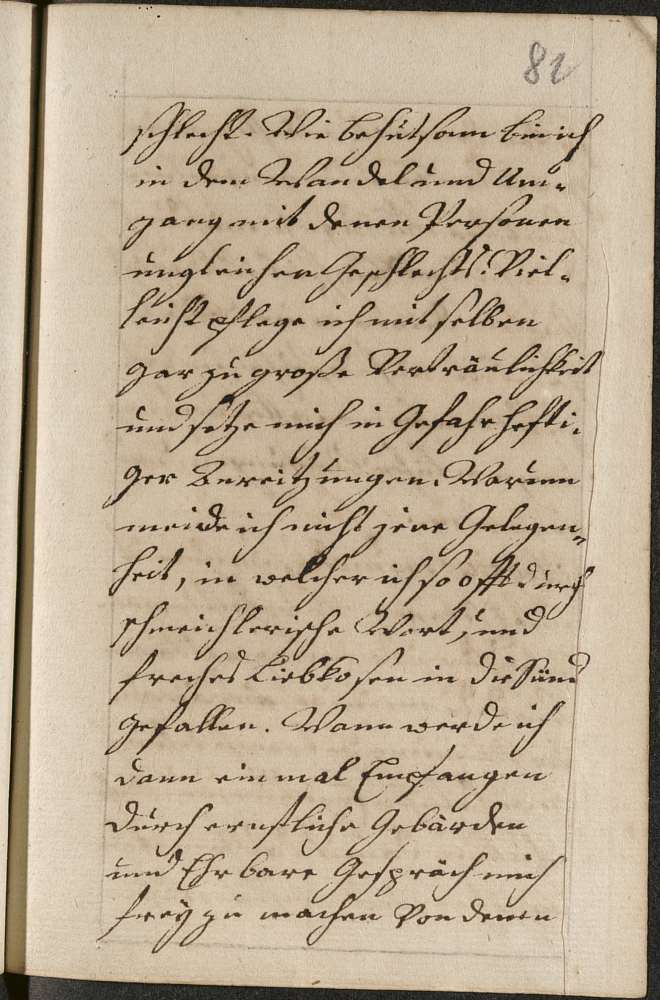 82
schlecht. Wie behutsam bin ich
in dem Wandel und Um-
gang mit denen Personen
ungleichen Geschlechts? Viel-
leicht pflege ich mit selben
gar zu große Verträulichkeit
und setze mich in Gefahr hefti-
ger Anreitzungen. Warum
meide ich nicht jene Gelegen-
heit, in welcher ich so offt durch
schmeichlerische Wort, und
freches Liebkosen in die Sünd
gefallen. Wann werde ich
dann einmal
durch ernstliche Gebärden
und Ehrbare Gespräch mich
frey zu machen von denen